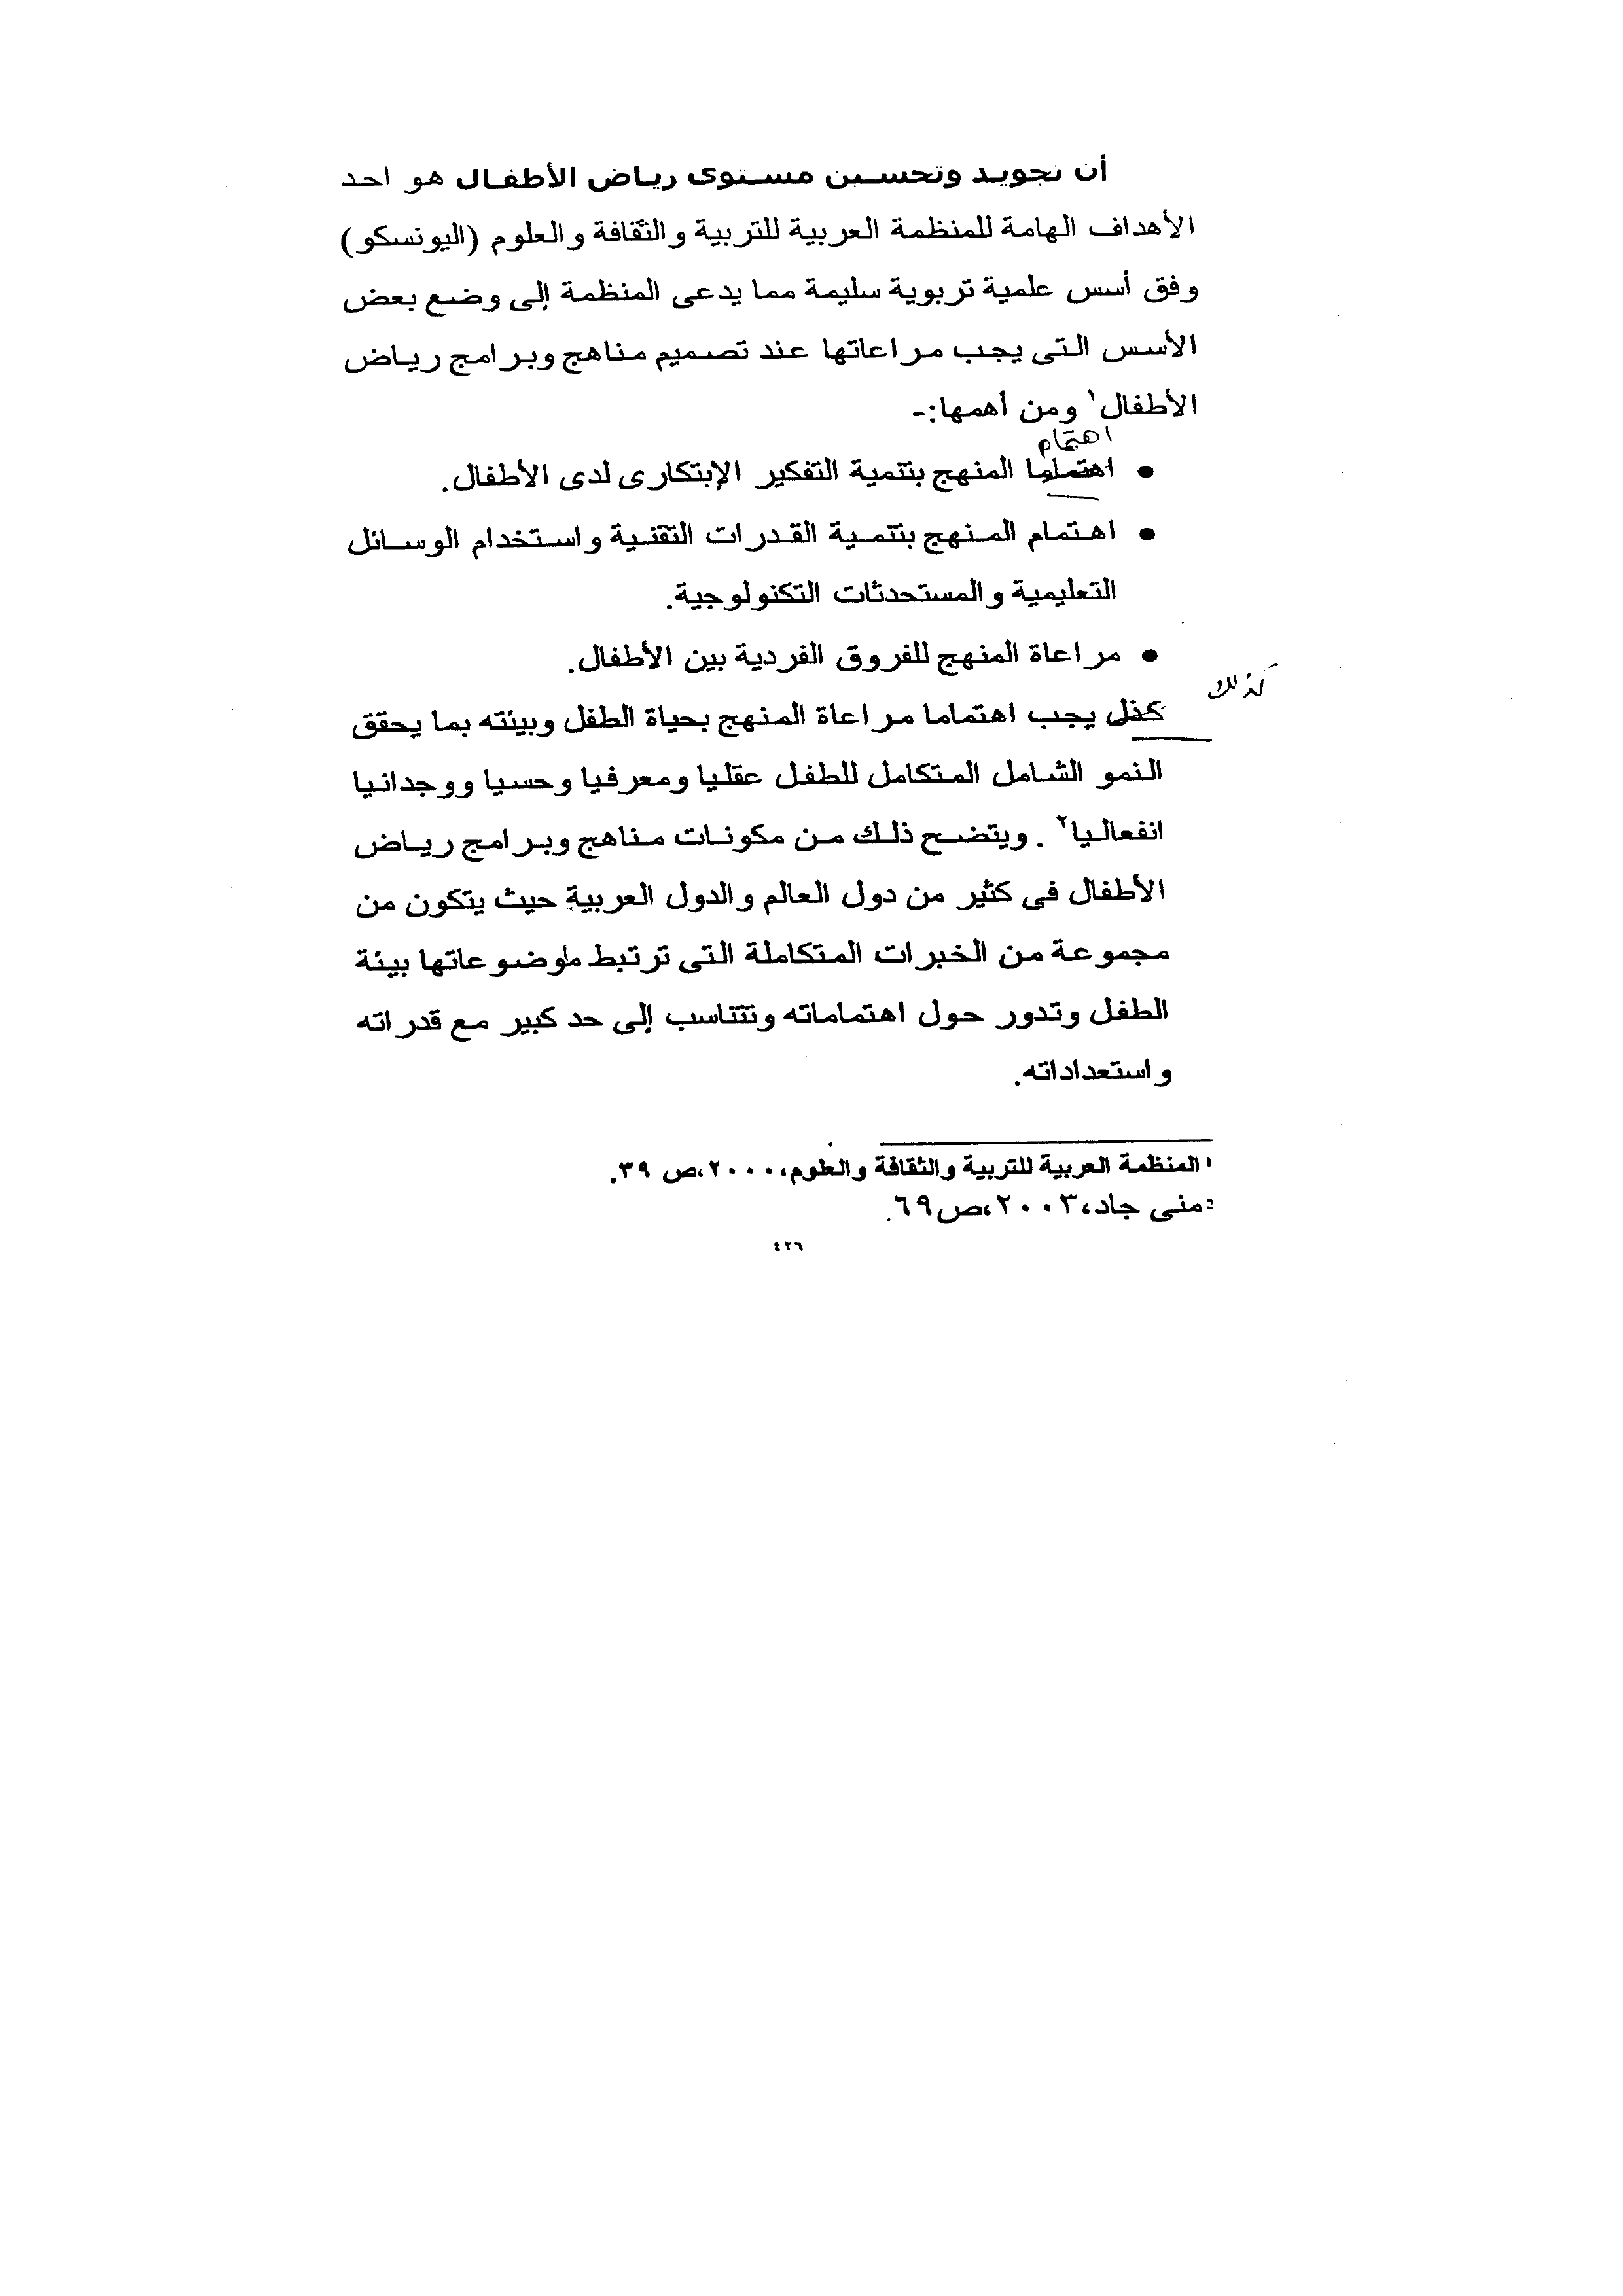 أن تجويد وتحسين مستوى رياض الأطفال هو احد
الأهداف الهامة للمنظمة العربية للتربية والثقافة والعلوم (اليونسكو)
وفق أسس علمية تربوية سليمة مما يدعى المنظمة إلى وضع بعض
الأسس التى يجب مراعاتها عند تصميم مناهج وبرامج رياض
الأطفال١ ومن أهمها:-
اهتمام
• اهتماما المنهج بتنمية التفكير الإبتكارى لدى الأطفال.
• اهتمام المنهج بتنمية القدرات التقنية واستخدام الوسائل
التعليمية والمستحدثات التكنولوجية.
• مراعاة المنهج للفروق الفردية بين الأطفال.
كذلك
كذل يجب اهتماما مراعاة المنهج بحياة الطفل وبيئته بما يحقق
النمو الشامل المتكامل للطفل عقليا ومعرفيا وحسيا ووجدانيا
انفعاليا٢ . ويتضح ذلك من مكونات مناهج وبرامج رياض
الأطفال فى كثير من دول العالم والدول العربية حيث يتكون من
مجموعة من الخبرات المتكاملة التى ترتبط ماوضوعاتها بيئة
الطفل وتدور حول اهتماماته وتتناسب إلى حد كبير مع قدراته
واستعداداته.
١ المنظمة العربية للتربية والثقافة والعلوم،٢٠٠٠،ص ٣٩.
٢ منى جاد،٢٠٠٣،ص٦٩.
٤٢٦